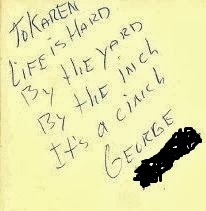 To KAREN
LiFE is HARD
By tHE YARD
By tHE iNCH
It's A CiNCH
GEORGE